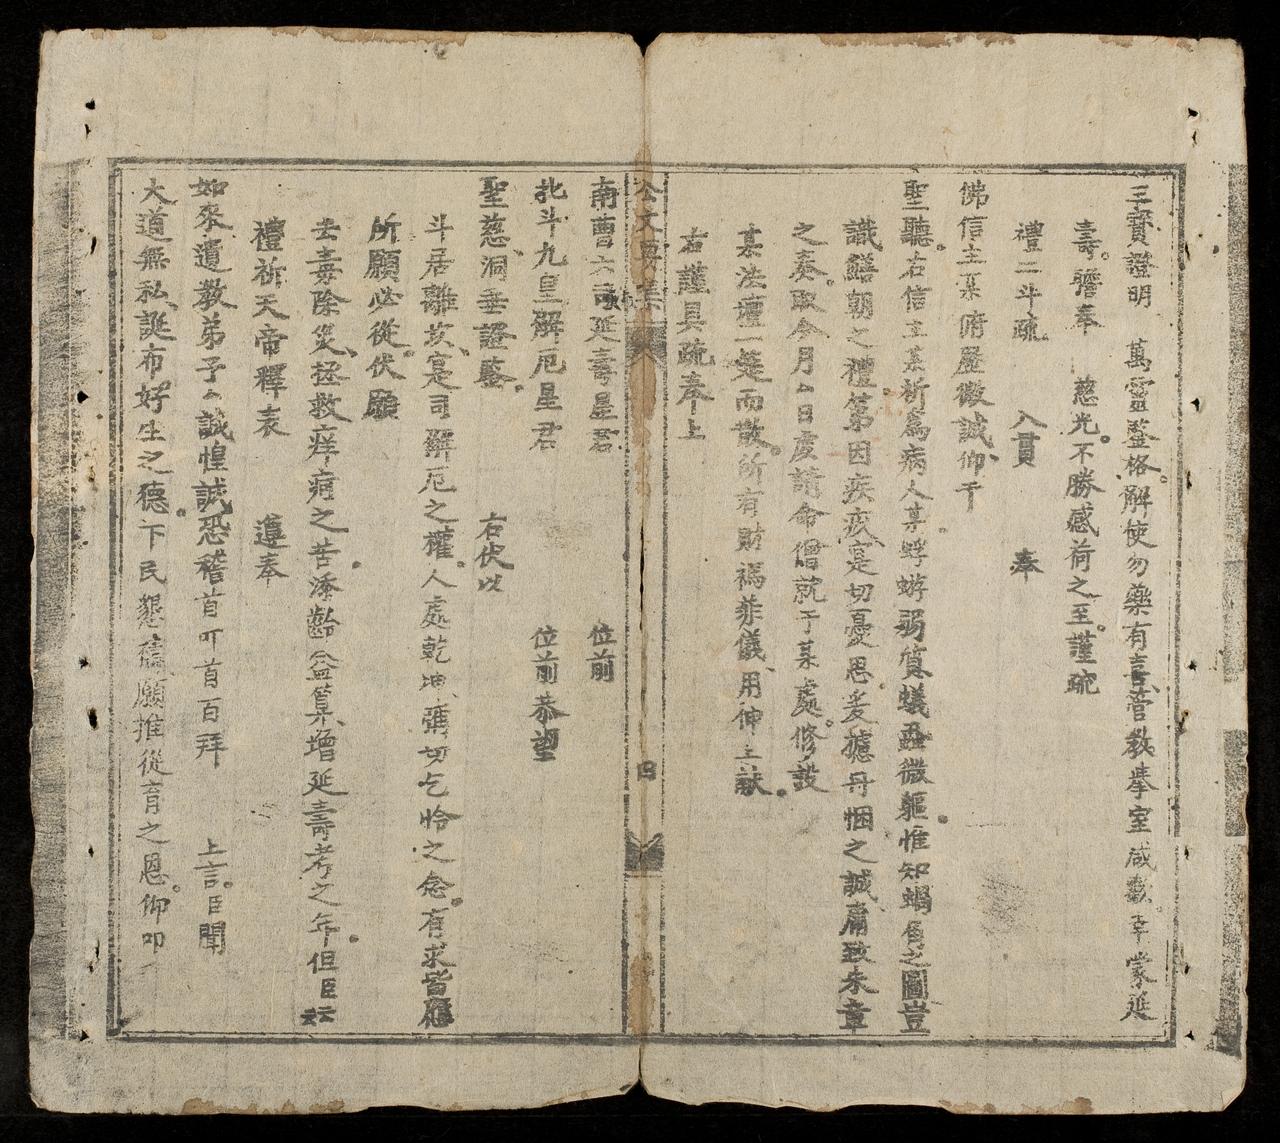 三寶證明 萬靈鑒格解使勿藥有喜管教擧室咸歡幸蒙延
壽謄奉 慈光不勝感荷之至謹疏
禮二斗疏 入貫 奉
佛信主某俯歷微誠仰干
聖聽右信主某祈為病人某蜉蝣弱質蟻蝨微軀惟知蝸角之圖豈
識鱔朝之禮第因疾疚寔切憂思爰攄丹悃之誠庸致朱章
之奏取今月々日虔請命僧就于某處修設
某法壇一筵而散所有財禡菲儀用伸上献
右謹具疏奉上
公文 集
四
南曹六司延壽星君 位前
北斗九皇解厄星君 位前恭望
聖慈洞垂證鑒 右伏以
斗居離坎寔司解厄之權人處乾坤 切乞怜之念有求皆應
所願必從伏願
去毒除災拯救痒疴之苦添齡益算增延壽考之年但臣云云
禮祈天帝釋表 遵奉
如來遺教弟子々誠惶誠恐稽首叩首百拜 上言臣聞
大道無私誕布好生之德下民懇禱願推從育之恩仰叩